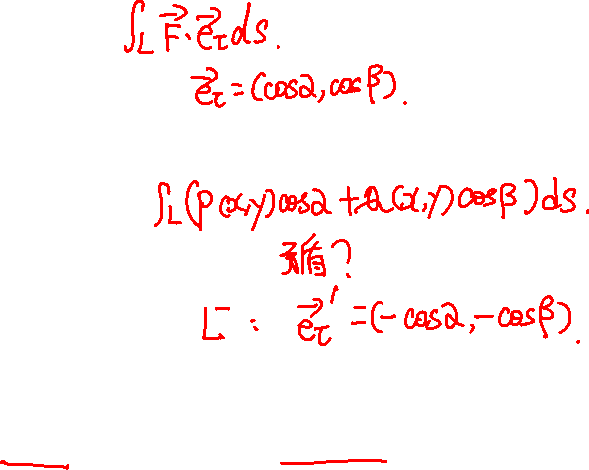 ∫_L F⃗·e⃗_τ ds.
e⃗_τ=(cosα,cosβ).
∫_L(P(x,y)cosα+Q(x,y)cosβ)ds.
矛盾?
L⁻: e⃗_τ'=(-cosα,-cosβ).